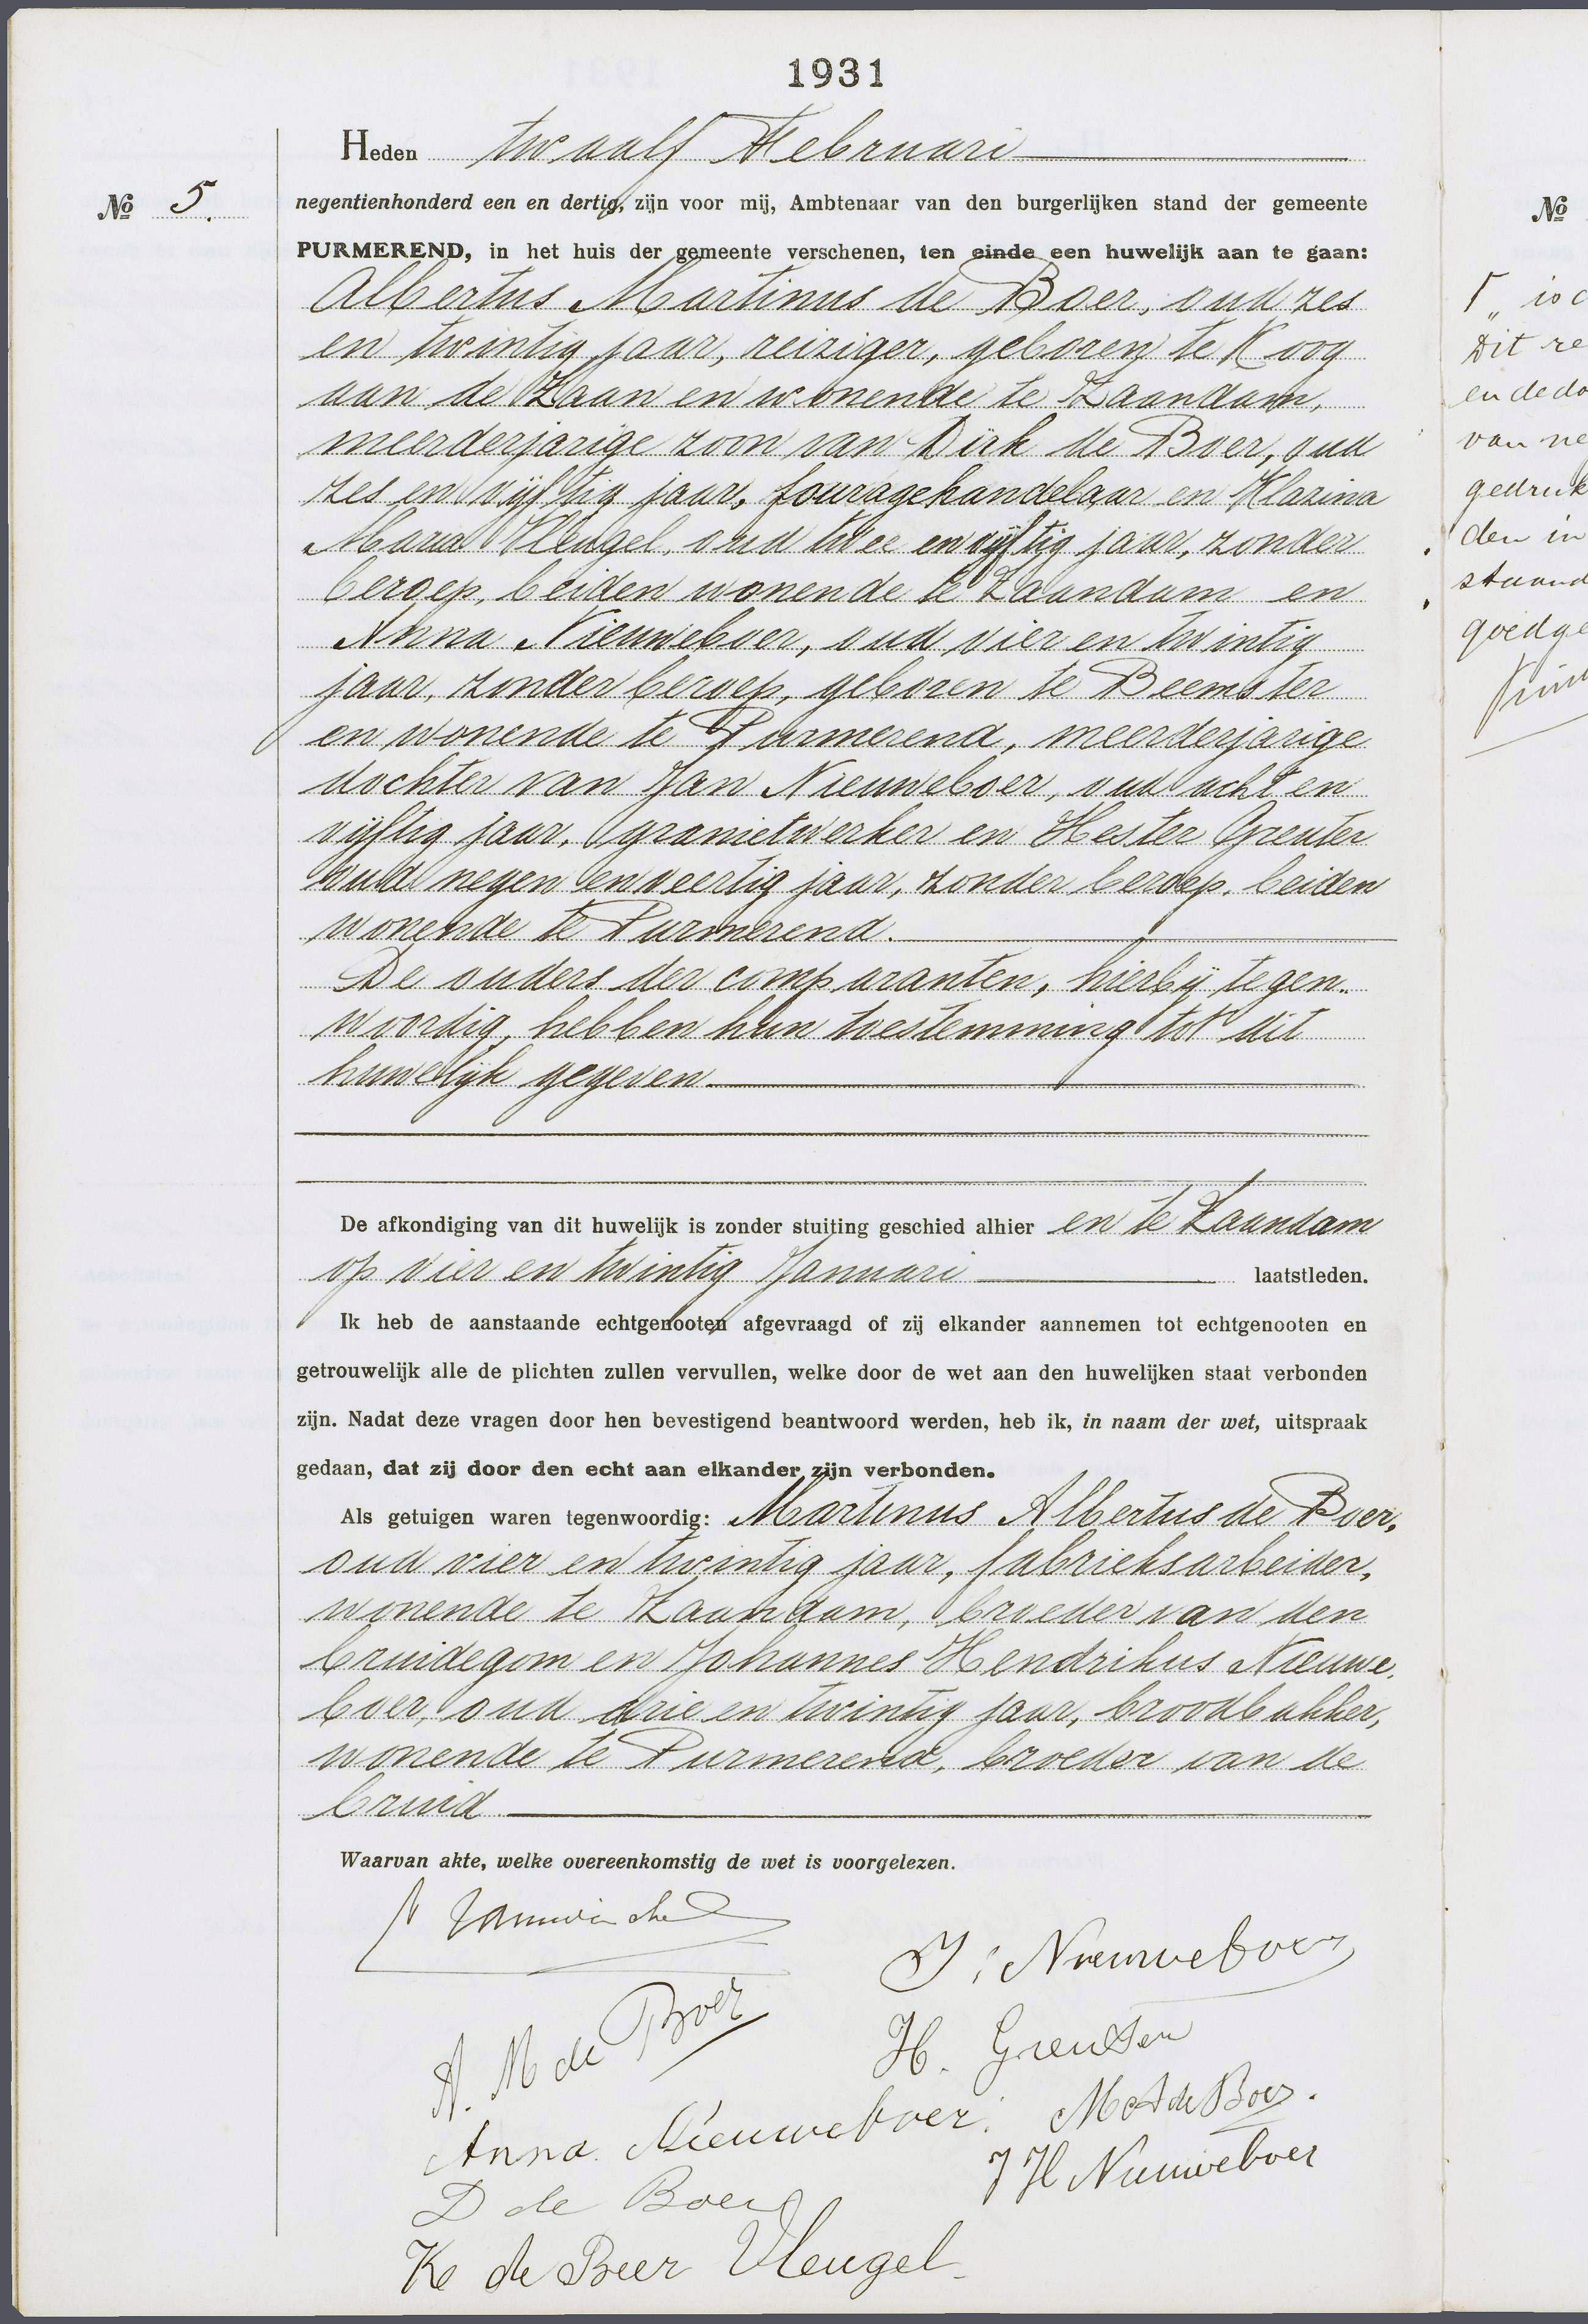 1931
Heden twaalf Februari
No 5.
negentienhonderd een en dertig, zijn voor mij, Ambtenaar van den burgerlijken stand der gemeente
PURMEREND, in het huis der gemeente verschenen, ten einde een huwelijk aan te gaan:
Albertus Martinus de Boer, oud zes
en twintig jaar, reiziger, geboren te Koog
aan de Zaan en wonende te Zaandam,
meerderjarige zoon van Dirk de Boer, oud
zes en vijftig jaar, fouragehandelaar en Klasina
Maria Vleugel, oud twee en vijftig jaar, zonder
beroep, beiden wonende te Zaandam en
Anna Nieuweboer, oud vier en twintig
jaar, zonder beroep, geboren te Beemster
en wonende te Purmerend, meerderjarige
dochter van Jan Nieuweboer, oud acht en
vijftig jaar, granietwerker en Hester Greuter
oud negen en veertig jaar, zonder beroep, beiden
wonende te Purmerend.
De ouders der comparanten, hierbij tegen-
woordig, hebben hun toestemming tot dit
huwelijk gegeven
De afkondiging van dit huwelijk is zonder stuiting geschied alhier en te Zaandam
op vier en twintig Januari laatstleden.
Ik heb de aanstaande echtgenooten afgevraagd of zij elkander aannemen tot echtgenooten en
getrouwelijk alle de plichten zullen vervullen, welke door de wet aan den huwelijken staat verbonden
zijn. Nadat deze vragen door hen bevestigend beantwoord werden, heb ik, in naam der wet, uitspraak
gedaan, dat zij door den echt aan elkander zijn verbonden.
Als getuigen waren tegenwoordig: Martinus Albertus de Boer,
oud vier en twintig jaar, fabrieksarbeider,
wonende te Zaandam, broeder van den
bruidegom en Johannes Hendrikus Nieuwe-
boer, oud drie en twintig jaar, broodbakker,
wonende te Purmerend, broeder van de
bruid
Waarvan akte, welke overeenkomstig de wet is voorgelezen.
J. Nieuweboer
A. M de Boer
H. Greuter
Anna Nieuweboer.
M A de Boer.
D de Boer
J H Nieuweboer
K de Boer Vleugel
No
dit re
en de do
van ne
gedruk
den in
staand
goedge